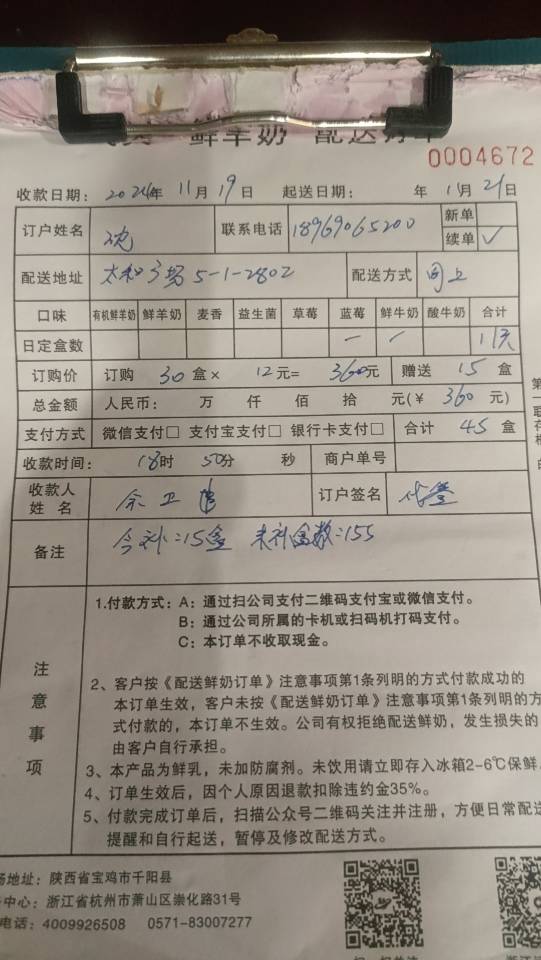 鲜羊奶 配送订单
0004672
收款日期：2024年11月19日 起送日期： 年11月21日
订户姓名 沈 联系电话 18969065200 新单
续单 ✓
配送地址 5-1-2802 配送方式 同上
口味 有机鲜羊奶 鲜羊奶 麦香 益生菌 草莓 蓝莓 鲜牛奶 酸牛奶 合计
日定盒数 一 1
订购价 订购 30 盒× 12 元= 360元 赠送 15 盒
总金额 人民币： 万 仟 佰 拾 元(￥ 360 元)
支付方式 微信支付□ 支付宝支付□ 银行卡支付□ 合计 45 盒
收款时间： 18时 50分 秒 商户单号
收款人 姓名 余卫 订户签名 代签
备注 今补：15盒 未补盒数：155
注意事项
1.付款方式：A：通过扫公司支付二维码支付宝或微信支付。
B：通过公司所属的卡机或扫码机打码支付。
C：本订单不收取现金。
2、客户按《配送鲜奶订单》注意事项第1条列明的方式付款成功的
本订单生效，客户未按《配送鲜奶订单》注意事项第1条列明的方
式付款的，本订单不生效。公司有权拒绝配送鲜奶，发生损失的
由客户自行承担。
3、本产品为鲜乳，未加防腐剂。未饮用请立即存入冰箱2-6℃保鲜
4、订单生效后，因个人原因退款扣除违约金35%。
5、付款完成订单后，扫描公众号二维码关注并注册，方便日常配送
提醒和自行起送，暂停及修改配送方式。
场地址：陕西省宝鸡市千阳县
中心：浙江省杭州市萧山区崇化路31号
电话：4009926508 0571-83007277
第一联存根